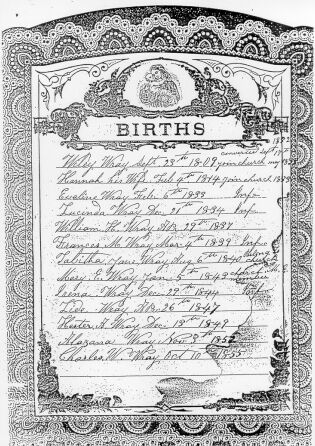 BIRTHS
Wiley Wray Sept 28th 1809 join church
Hannah his Wife Feb 9th 1814 join church
Eveline Wray Feb 6th 1833 Inf
Lucinda Wray Dec 21st 1834 Inf
William H. Wray 29th 1837
Frances M. Wray Mar 4th 1839 Inf
Tabitha Jane Wray Aug 6th 1840
Mary E. Wray Jan 5th 1843 church
Irena Wray Dec 29th 1844
Wray 26th 1847
Hester A. Wray Dec 13th 1849
Wray Nov 8th 1852
Charles W. Wray Oct 10th 1855